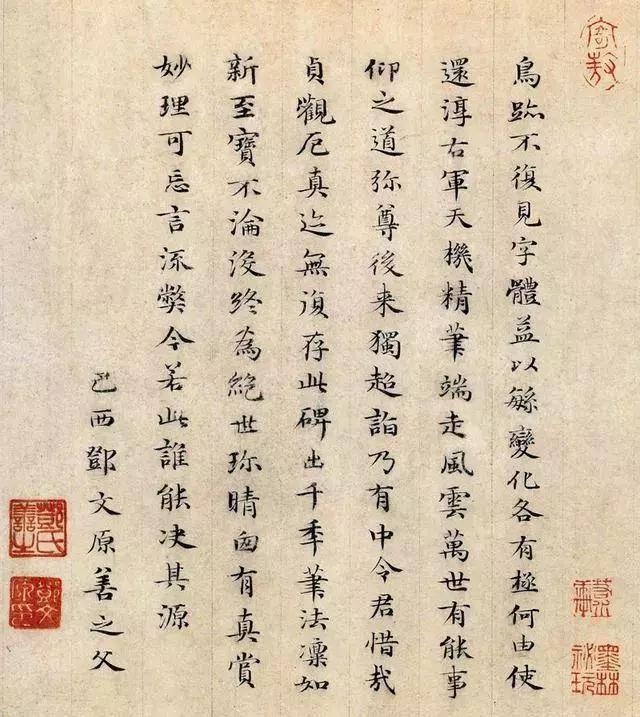 鳥跡不復見字體益以緐變化各有極何由使
還淳右軍天機精筆端走風雲萬世有能事
仰之道弥尊後来獨超詣乃有中令君惜哉
貞觀厄真迹無復存此碑出千秊筆法凛如
新至寶不淪没終為絶世珍晴窗有真賞
妙理可忘言流弊今若此誰能决其源
己酉鄧文原善之父
墨林祕玩